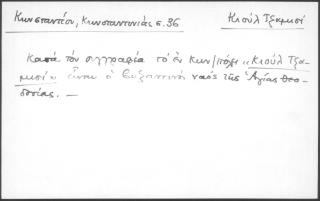 Κωνσταντίου, Κωνσταντινιάς σ. 36
Κιούλ Τζαμισί
Κατά τον συγγραφέα το εν Κων/πόλει „Κιούλ Τζα-
μισί" είναι ο βυζαντινός ναός της Αγίας Θεο-
δοσίας. —